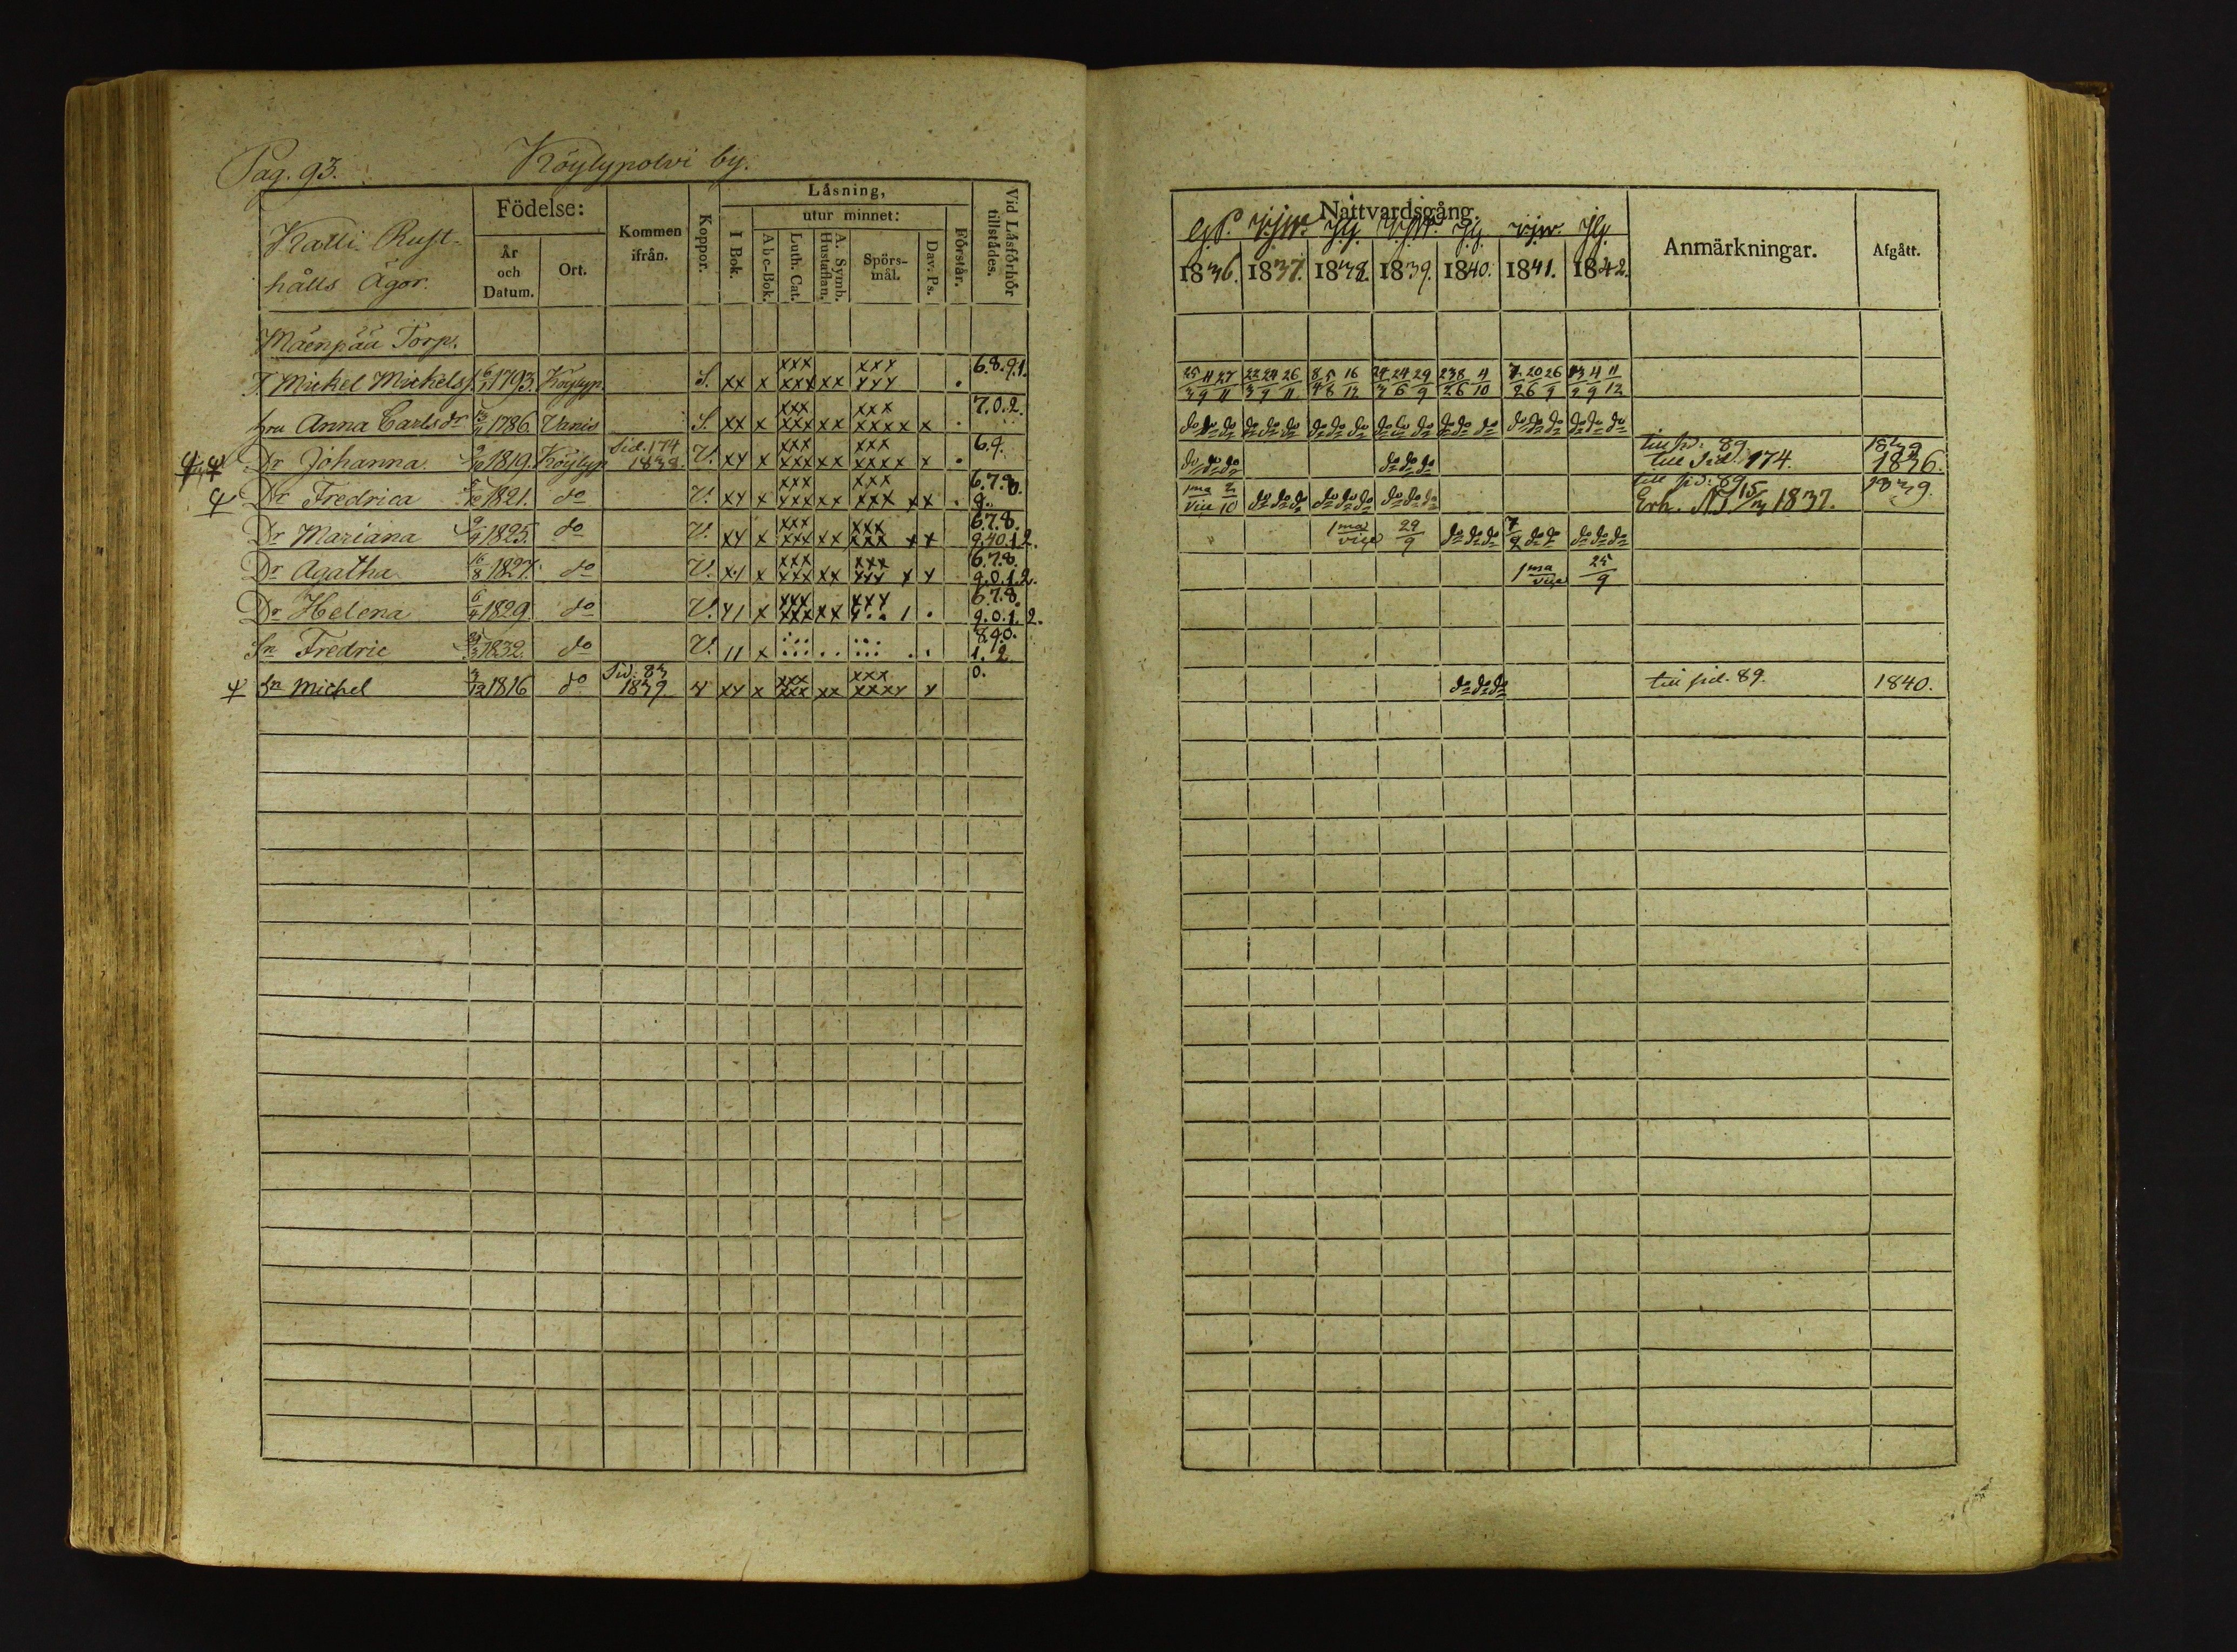 Pag. 93. Köylypolvi by.
Födelse: Kommen ifrån. Koppor. Läsning, Vid Läsförhör tillstädes.
utur minnet:
Kalli Rust-
hålls Ägor.
År och Datum. Ort. I Bok. Abc-Bok. Luth. Cat. A. Symb. Hustaflan. Spörs-mål. Dav. Ps. Förstår.
Mäenpää Torp.
T. Michel Michelss. 1793. Köylyp. S. xx x xxx xxx xx xxx xxx . 6.8.9.1.
hru Anna Carlsdr 1786. Vanis S. xx x xxx xxx xx xxx xxxx x . 7.0.2.
Dr Johanna 1819. Köylyp Sid. 174 1838. V. xx x xxx xxx xx xxx xxxx x . 6.9.
Dr Fredrica 1821. do V. xx x xxx xxx xx xxx xxx xx . 6.7.8. 9.
Dr Mariana 1825. do V. xx x xxx xxx xx xxx xxx xx 6.7.8. 9.40.1.2.
Dr Agatha 16/8 1827. do V. x x xxx xxx xx xxx xxx x x 6.7.8. 9.0.1.2.
Dr Helena 1829. do V. x xxx xxx xx xxx 1 . 6.7.8. 9.0.1.2.
Sn Fredric 1832. do V. 11 x 8.9.0. 1.2.
Sn Michel 1816 do Sid. 83 1839 xx x xxx xxx xx xxx xxxx x 0.
Nattvardsgång. Anmärkningar. Afgått.
1836. 1837. 1838. 1839. 1840. 1841. 1842.
25/3 11/9 27/11 22/3 24/9 26/11 8/4 5/8 16/12 24/3 24/6 29/9 4/10 7/2 20/6 26/9 4/9 11/12
do do do do do do do do do do do do do do do do do do do do do
do do do do do do till sid. 89. 1839
till Sid. 174. 1836.
1ma vice 2/10 do do do do do do do do do till sid. 89 1839.
Erh. 1837.
1ma vice 29/9 do do do 7/2 do do do do do
1ma vice 25/9
do do do till sid. 89. 1840.